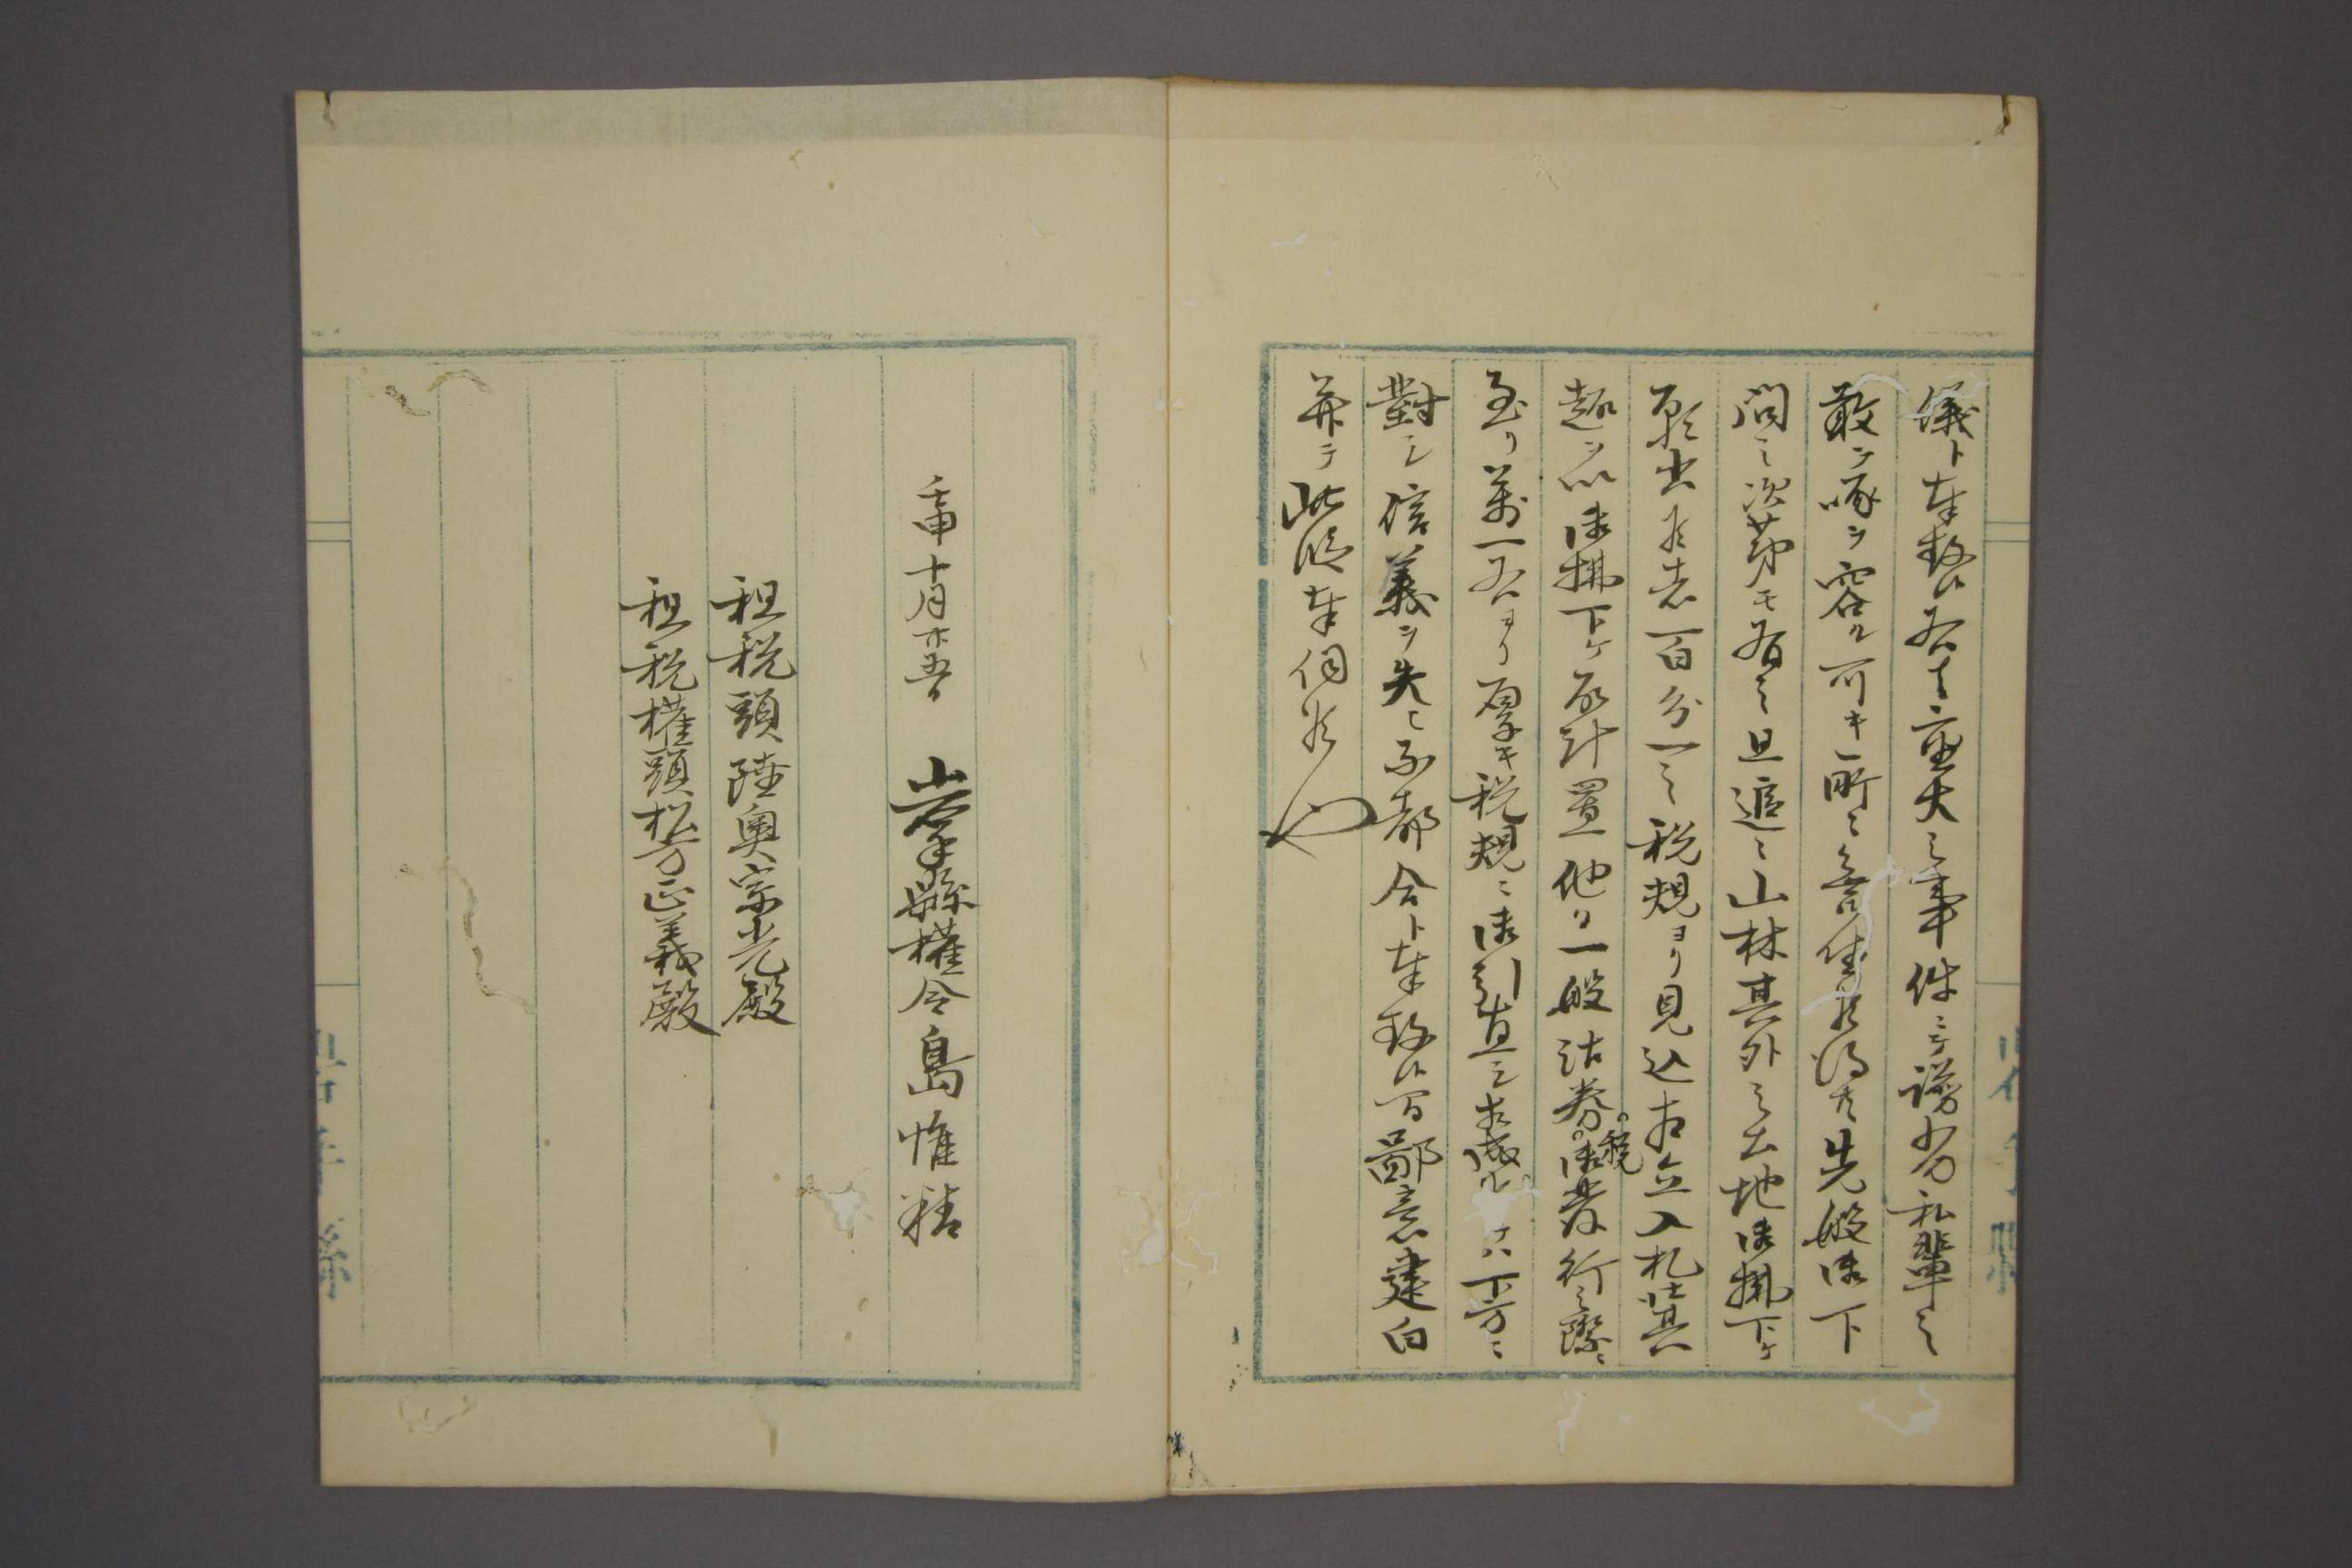 儀ト奉存候右ハ重大之事件ニテ謭劣私輩之
敢テ喙ヲ容ル可キ所ニ無御座候得共先般御下
問之次第モ有之且追々山林其外之土地御拂下ケ
願出候者百分一之税規ヨリ見込相立入札仕其
趣ヲ以御拂下ケ取計置他日一般沽券税御発行之際ニ
至リ万一右ヨリ厚キ税規ニ御引直シ相成候テハ下方ニ
對シ信義ヲ失ヒ不都合ト奉存候間鄙意建白
并テ此段奉伺候也
壬申十月廿五日 岩手縣權令島惟精
租税頭陸奥宗光殿
租税權頭松方正義殿